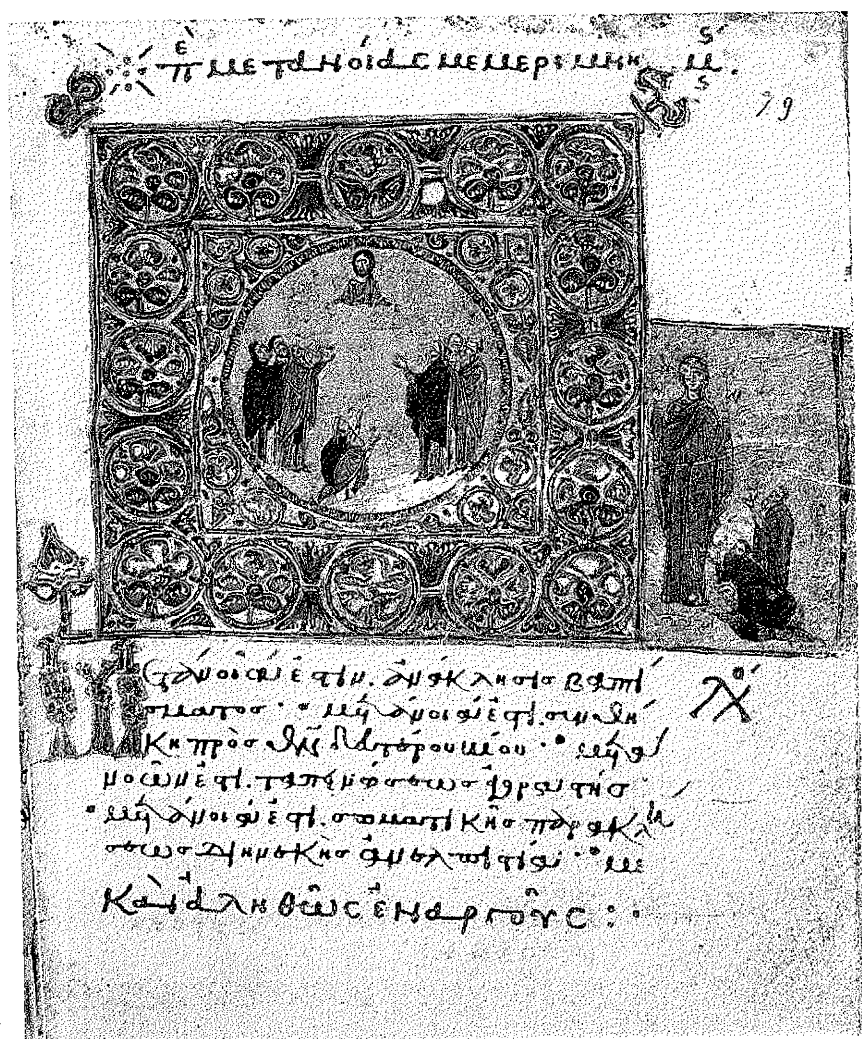 π ε μετανοίας μεμεριμνημ
79
Μετάνοιά ἐστιν. ἀνάκλησις βαπτί
σματος· μετάνοιά ἐστι. συνθή
κη πρὸς θν̄ δευτέρου βίου· μετά
νοιά ἐστι. ταπεινώσεως ἀγοραστής·
μετάνοιά ἐστι. σωματικῆς παρακλή
σεως διηνεκὴς ἀνελπιστία· με
Καὶ ἀληθῶς ἐναργοῦς :·